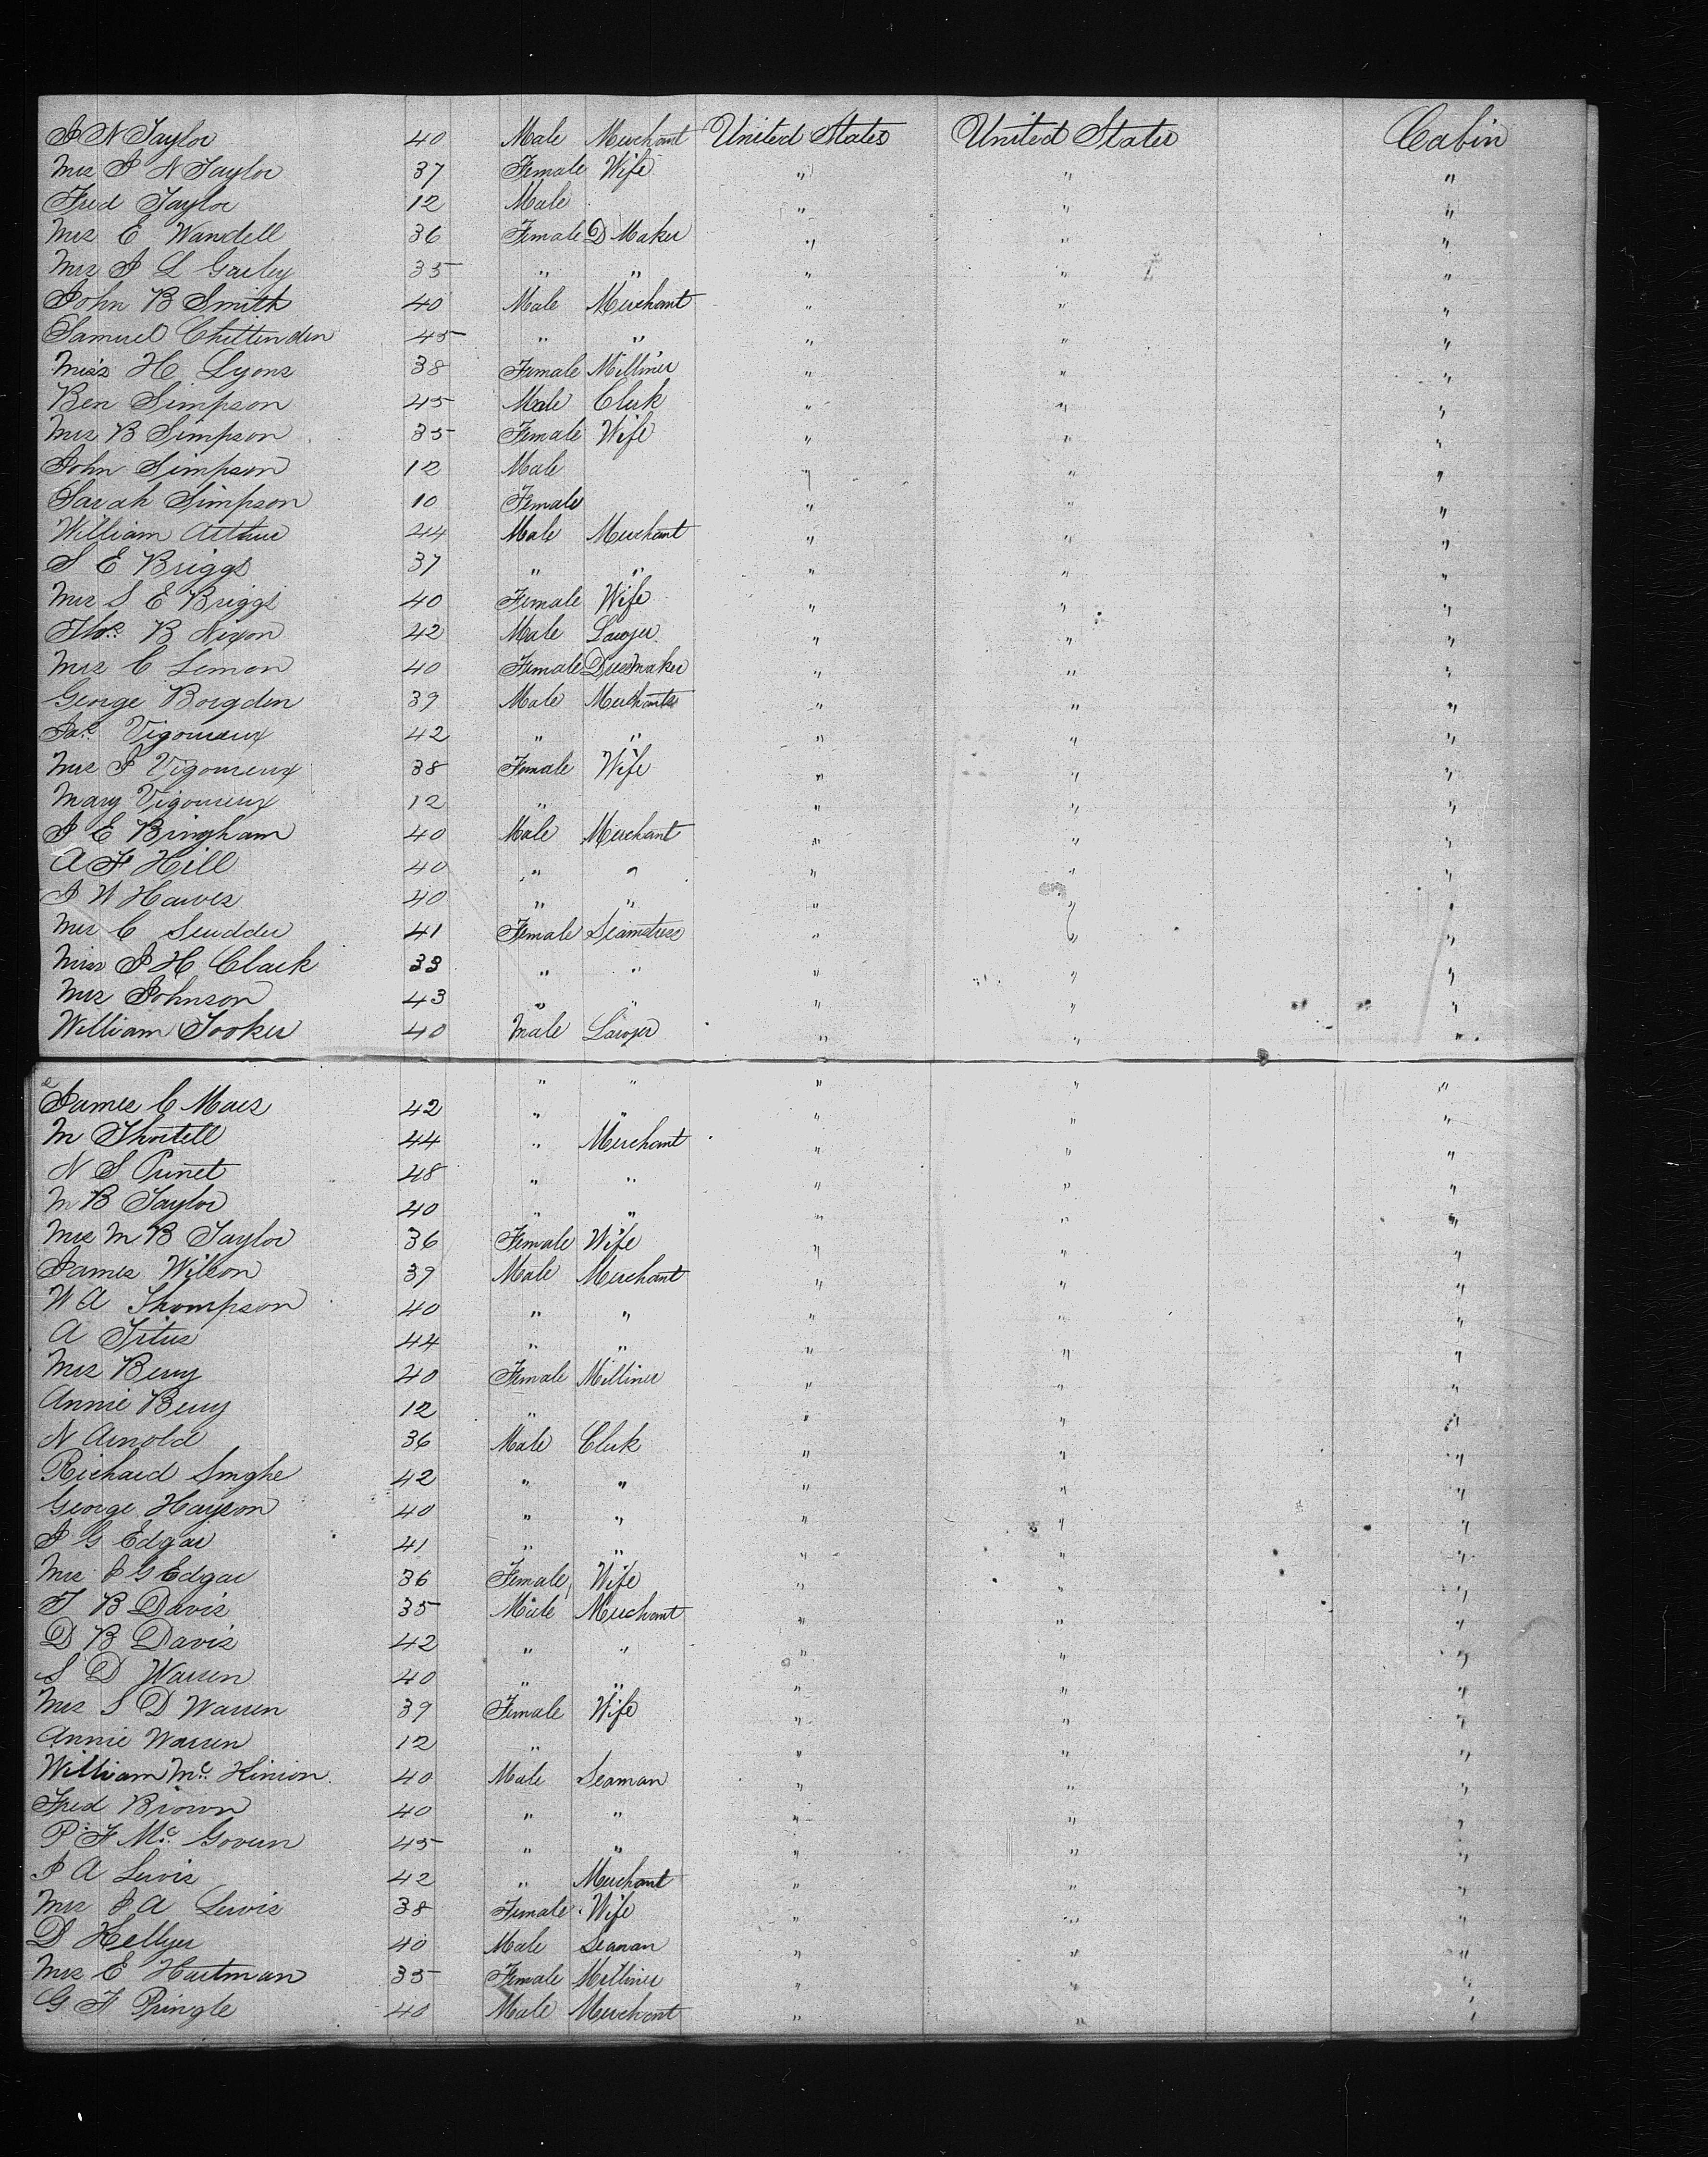 J N Taylor 40 Male Merchant United States United States Cabin
Mrs J N Taylor 37 Female Wife " " "
Fred Taylor 12 Male " " "
Mrs E Wandell 36 Female D Maker " " "
Mrs J L Gurley 35 " " " " "
John B Smith 40 Male Merchant " " "
Samuel Chittenden 45 " " " " "
Miss H Lyons 38 Female Milliner " " "
Ben Simpson 45 Male Clerk " " "
Mrs B Simpson 35 Female Wife " " "
John Simpson 12 Male " " "
Sarah Simpson 10 Female " " "
William Arthur 44 Male Merchant " " "
S E Briggs 37 " " " " "
Mrs S E Briggs 40 Female Wife " " "
Thos. B Nixon 42 Male Lawyer " " "
Mrs C Lemon 40 Female Dressmaker " " "
George Borgden 39 Male Merchants " " "
Jas. Vigoureux 42 " " " " "
Mrs J Vigoureux 38 Female Wife " " "
Mary Vigoureux 12 " " " "
J E Bringham 40 Male Merchant " " "
A F Hill 40 " " " " "
J W Hawes 40 " " " " "
Mrs C Scudder 41 Female Seamstress " " "
Miss J H Clark 33 " " " " "
Mrs Johnson 43 " " " " "
William Tooker 40 Male Lawyer " " "
" " " " "
James C Mars 42 " " " " "
M Thortell 44 " Merchant " " "
N S Prinet 48 " " " " "
M B Taylor 40 " " " " "
Mrs M B Taylor 36 Female Wife " " "
James Wilson 39 Male Merchant " " "
W A Thompson 40 " " " " "
A Titus 44 " " " " "
Mrs Berry 40 Female Milliner " " "
Annie Berry 12 " " " "
N Arnold 36 Male Clerk " " "
Richard Smghe 42 " " " " "
George Hayson 40 " " " " "
J G Edgar 41 " " " " "
Mrs J G Edgar 36 Female Wife " " "
T B Davis 35 Male Merchant " " "
D B Davis 42 " " " " "
S D Warren 40 " " " " "
Mrs S D Warren 39 Female Wife " " "
Annie Warren 12 " " " "
William Mc. Kinion 40 Male Seaman " " "
Fred Brown 40 " " " " "
P. F Mc. Govern 45 " " " " "
J A Lewis 42 " Merchant " " "
Mrs J A Lewis 38 Female Wife " " "
D Hellyer 40 Male Seaman " " "
Mrs E Hartman 35 Female Milliner " " "
G F Pringle 40 Male Merchant " " "